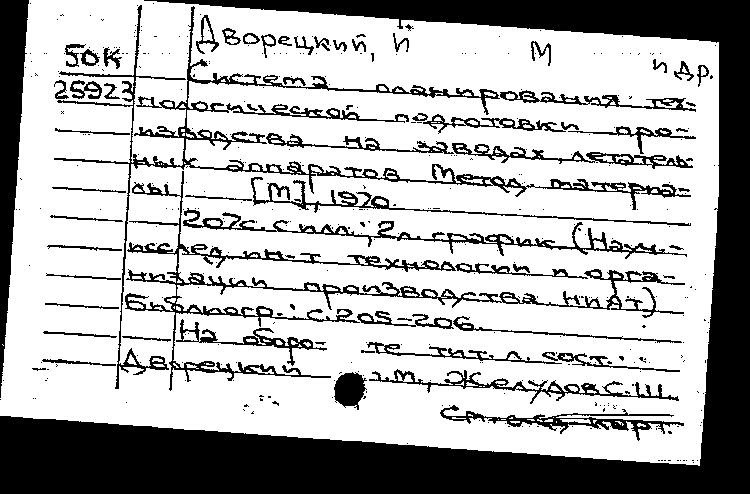 Дворецкий, И М и др.
50К
25923
Система планирования тех-
нологической подготовки про-
изводства на заводах летатель-
ных аппаратов Метод. материа-
лы [М], 1970.
207с. с илл.; 2л. график (Науч.-
исслед. ин-т технологии и орга-
низации производства НИАТ)
Библиогр.: с.205-206.
На оборо- те тит. л. сост.:
Дворецкий .М., Желудов С.Ш.
См. след. карт.